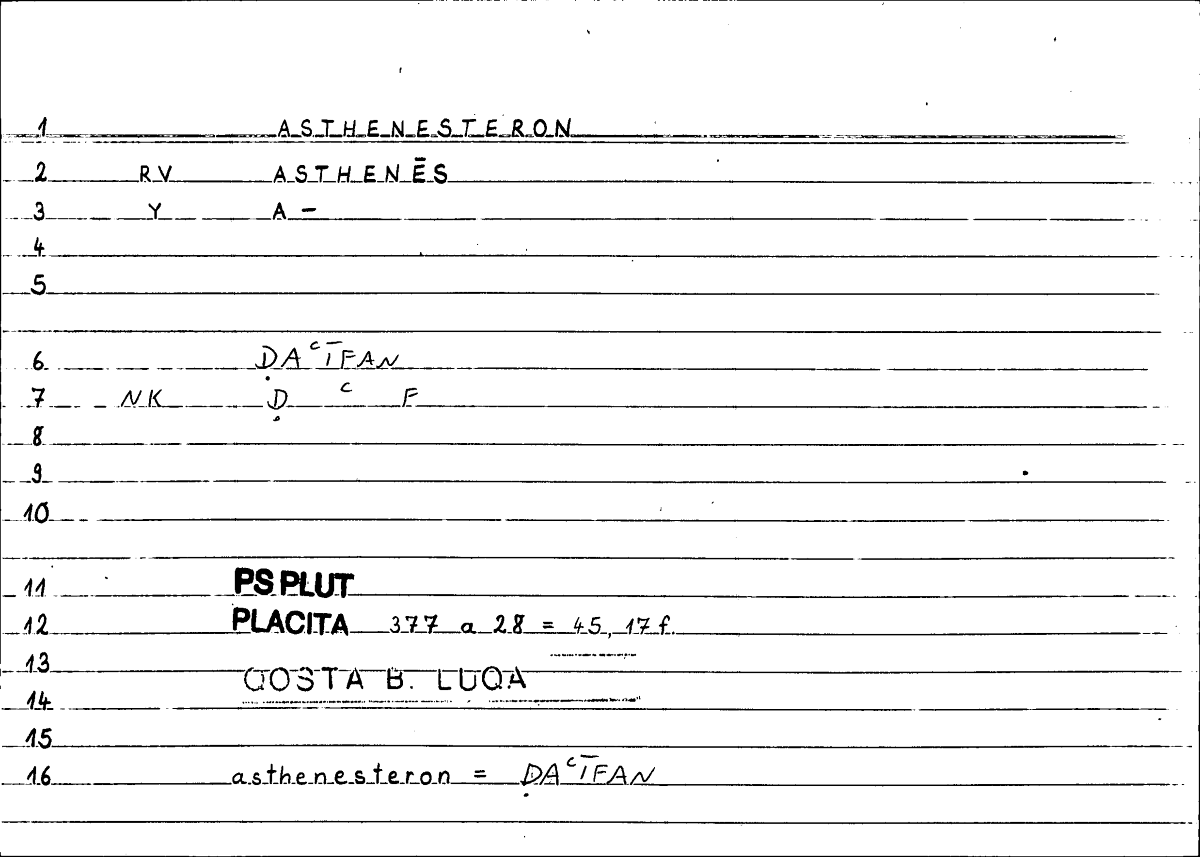 1 ASTHENESTERON
2 RV ASTHENĒS
3 Y A –
4
5
6 ḌAᶜĪFAN
7 NK Ḍ ᶜ F
8
9
10
11 PS PLUT
12 PLACITA 377 a 28 = 45, 17 f.
13 QOSTA B. LUQA
14
15
16 asthenesteron = ḌAᶜĪFAN